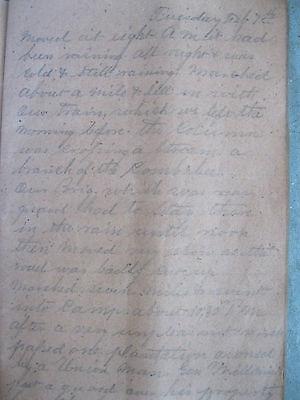 Tuesday Feb 7th
Moved at eight A M it had
been raining all night & was
cold & still raining. Marched
about a mile & fell in with
our train, which we left the
morning before. The column
was crossing a stream a
branch of the Combahee.
Our Brig. which was rear
guard had to stand there
in the rain until noon
then moved very slow as the
road was badly cut up
Marched seven miles & went
into Camp about 10,30 P M
after a very unpleasant
passed one plantation owned
by a Union man. Gen Williams
put a guard over his property